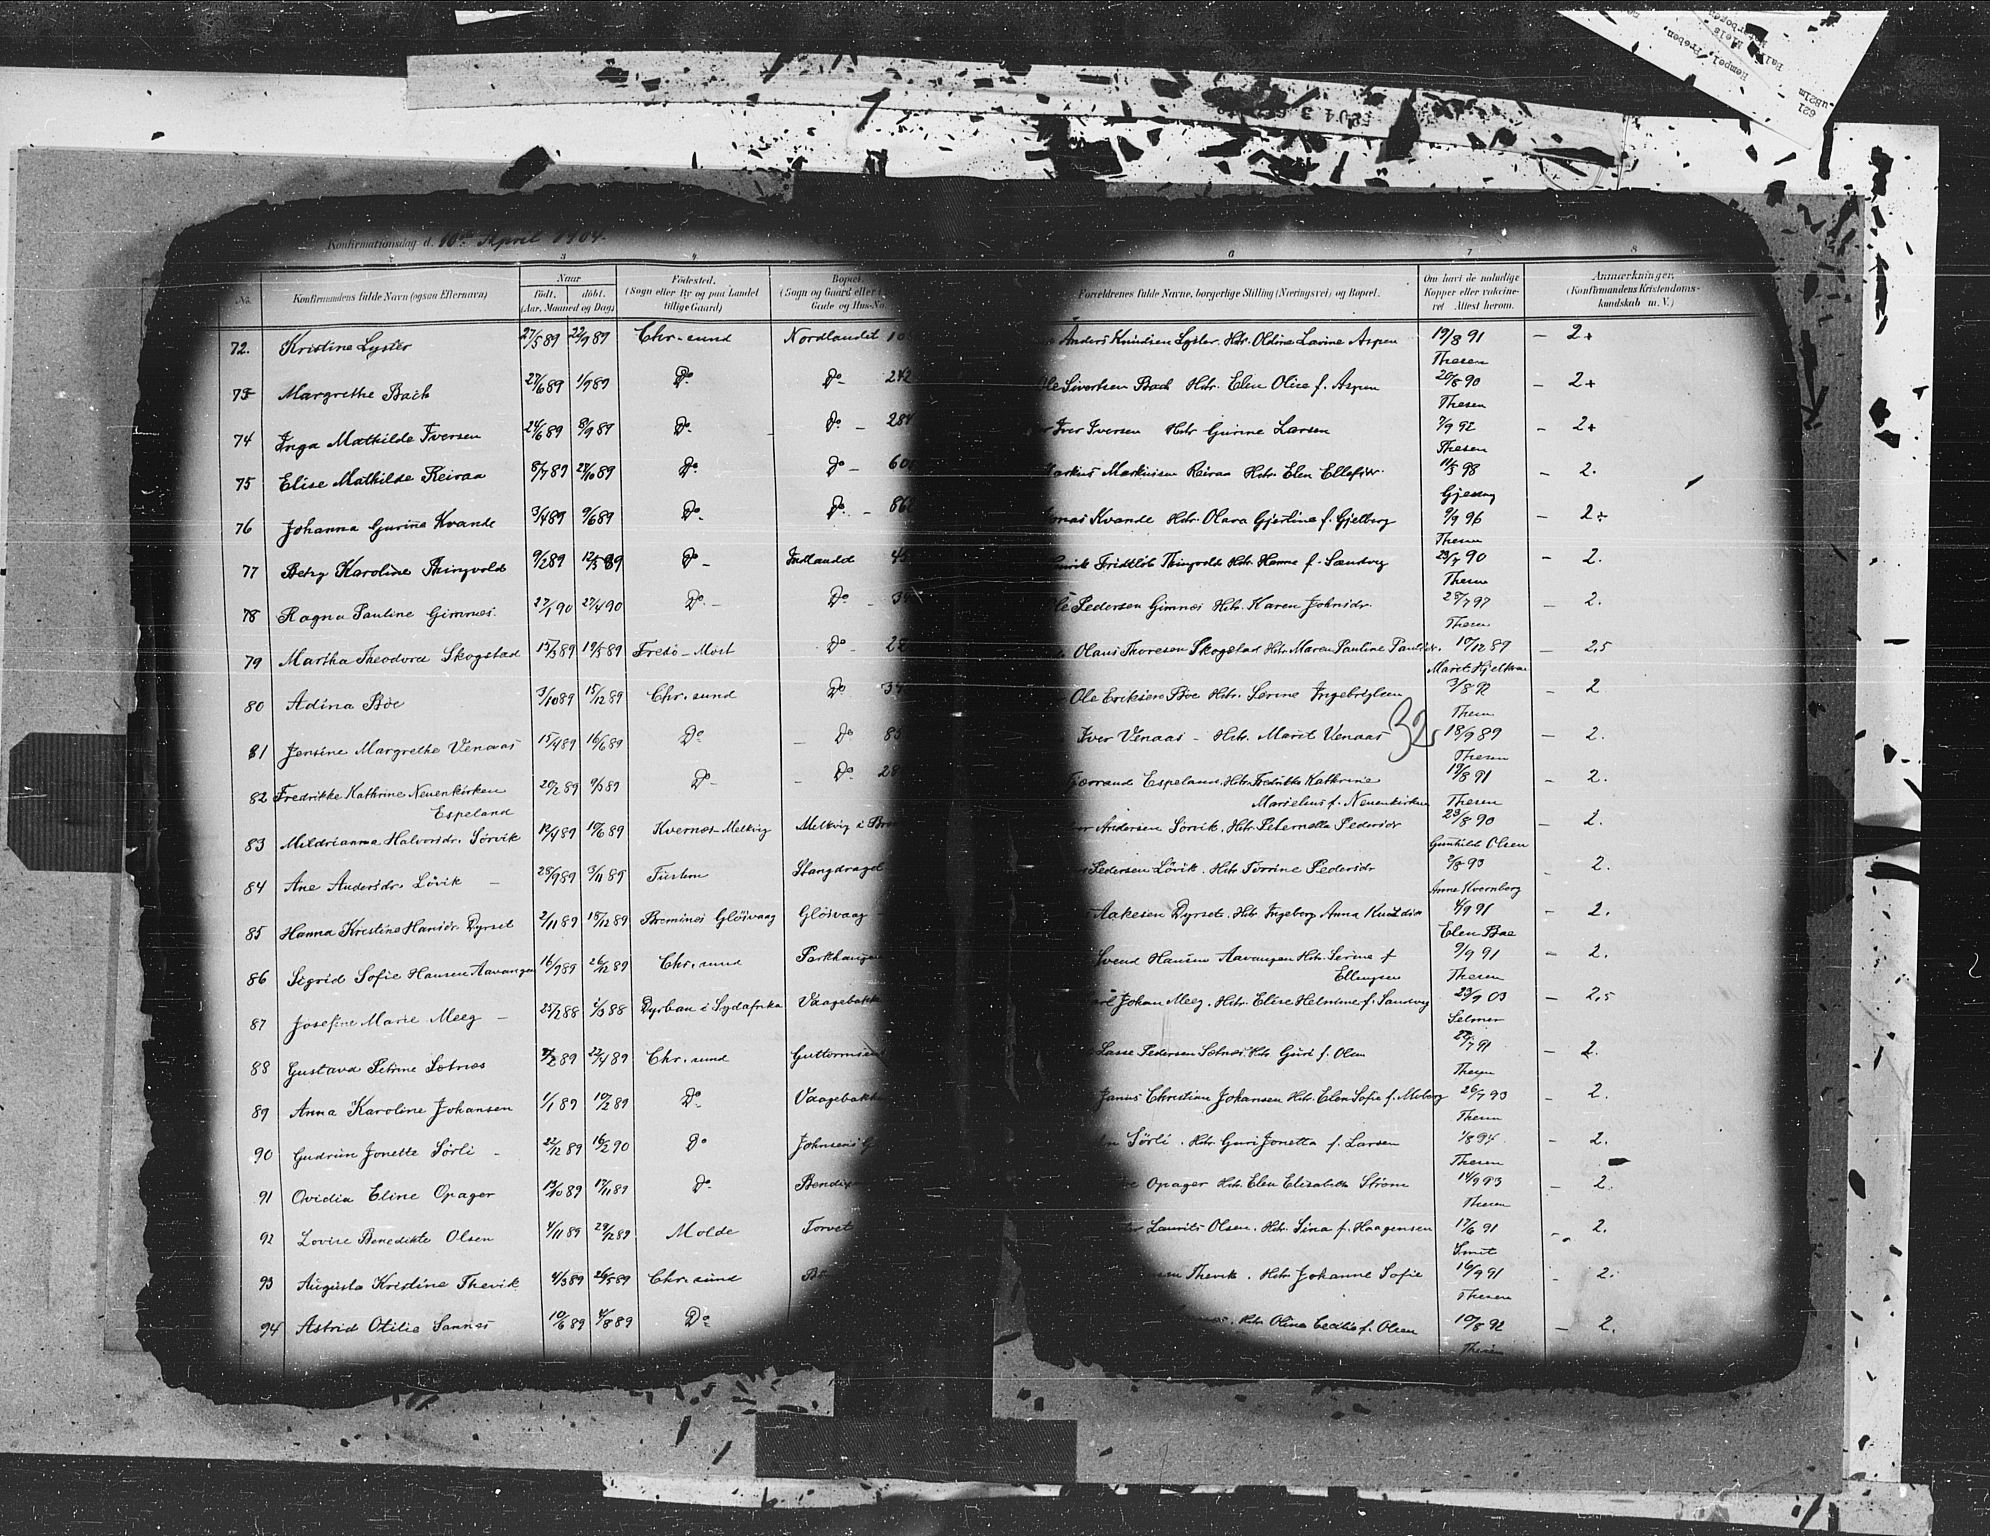 Konfirmationsdag d. 10de April 1904.
No. Konfirmandens fulde Navn (ogsaa Efternavn) Naar født, døbt. (Aar, Maaned og Dag) Fødested. (Sogn eller By og paa Landet tillige Gaard) Bopæl. (Sogn og Gaard eller Gade og Hus-No. Forældrenes fulde Navne, borgerlige Stilling (Næringsvei) og Bopæl. Om havt de naturlige Kopper eller vaccineret Attest herom. Anmærkninger. (Konfirmandens Kristendomskundskab m. V.)
72. Kristine Lyster 27/5 89 22/9 89 Chr.sund Nordlandet Anders Knudsen Lyster. Hstr. Oldine Lavine Aspen 19/8 91 – 2+
Thesen
73 Margrethe Bach 27/6 89 1/9 89 Do Do 242 Sivertsen Bach Hstr. Elen Oline f. Aspen 20/8 90 – 2+
Thesen
74 Inga Mathilde Iversen 24/6 89 8/9 89 Do Do – 284 Iver Iversen Hstr Gurine Larsen 7/9 92 – 2+
Thesen
75 Elise Mathilde Reiraa 8/7 89 27/10 89 Do Do – 601 Markus Markusen Reiraa Hstr. Elen Ellefsdr. 11/5 98 – 2.
Gjessing
76 Johanna Gurine Kvande 3/4 89 9/6 89 Do Do – 862 Jonas Kvande Hstr. Olava Gjertine f. Gjelberg 9/9 96 – 2+
Thesen
77 Betzy Karoline Thingvold 9/2 89 12/5 89 Do – Indlandet 45 Fridtløb Thingvold Hstr. Hanna f. Sandvig 23/7 90 – 2.
Thesen
78 Ragna Pauline Gimnes 27/1 90 27/4 90 Do – Do – Pedersen Gimnes Hstr. Karen Johnsdr. 28/7 97 – 2.
Thesen
79 Martha Theodora Skogstad 15/3 89 19/5 89 Fredø – Most Do – Olaus Thoresen Skogstad Hstr. Maren Pauline Paulsdr. 17/12 89 – 2,5
Marit Hjelkrem
80 Adina Bøe 3/10 89 15/12 89 Chr.sund Do Ole Eriksen Bøe Hstr. Serine Ingebrigtsen 3/8 92 – 2
Thesen
81 Jensine Margrethe Venaas 15/4 89 16/6 89 Do – Do Iver Venaas – Hstr. Marit Venaas 32 18/9 89 – 2.
Thesen
82 Fredrikke Kathrine Neuenkirken 20/2 89 9/5 89 Do – Do Tjærrand Espeland. Hstr. Fredrikke Kathrine 19/8 91 – 2.
Espeland Marselius f. Neuenkirken Thesen
83 Mildrianna Halvorsdr. Sørvik 12/4 89 10/6 89 Kvernes – Melkvig Melkvig i Andersen Sørvik. Hstr. Peternella Pedersdr 23/8 90 – 2.
Gunhild Olsen
84 Ane Andersdr. Løvik – 28/9 89 3/11 89 Tustern Stangdraget Pedersen Løvik. Hstr Torrine Pedersdr 2/8 93 2.
Anne Kvernberg
85 Hanna Kristine Hansdr. Dyrset 2/11 89 18/12 89 Bremnes Gløsvaag Gløsvaag Aakesen Dyrset. Hstr. Ingeborg Anna Knutsdtr 4/9 91 – 2.
Elen Bae
86 Sigrid Sofie Hansen Aavangen 16/9 89 26/12 89 Chr.sund Parkhaugen Svend Hansen Aavangen Hstr. Serine f 9/9 91 – 2.
Ellingsen Thesen
87 Josefine Marie Meeg – 25/2 88 2/3 88 Dyrban i Sydafrika Vaagebakke Johan Meeg. Hstr. Elise Helmine f. Sandvig 23/9 03 – 2,5
Selmer
88 Gustava Petrine Sætnæs 2/2 89 22/4 89 Chr.sund Guttormsens Lasse Pedersen Sætnæs. Hstr. Guri f. Olsen 22/7 91 – 2.
Thesen
89 Anna Karoline Johansen 1/1 89 10/2 89 Do Vaagebakken Janus Christian Johansen Hstr. Elen Sofie f. Moberg 26/7 93 – 2.
Thesen
90 Gudrun Jonette Sørli – 22/12 89 16/2 90 Do Johnsens Sørli. Hstr. Guri Jonetta f. Larsen 1/8 94 – 2.
Thesen
91 Ovidia Eline Opager 13/10 89 17/11 89 Do Opager Hstr. Elen Elisabeth Strøm 14/9 93 – 2.
Thesen
92 Lovise Benedikte Olsen 4/11 89 29/12 89 Molde Torvet Laurits Olsen. Hstr. Sina f. Haagensen 17/6 91 – 2.
Smit
93 Augusta Kristine Thevik 4/3 89 26/5 89 Chr.sund Thevik. Hstr. Johanne Sofie 16/9 91 – 2.
Thesen
94 Astrid Otilie Sannes 10/6 89 4/8 89 Do Hstr Olina Cecilie f. Olsen 10/8 92 – 2.
Thesen